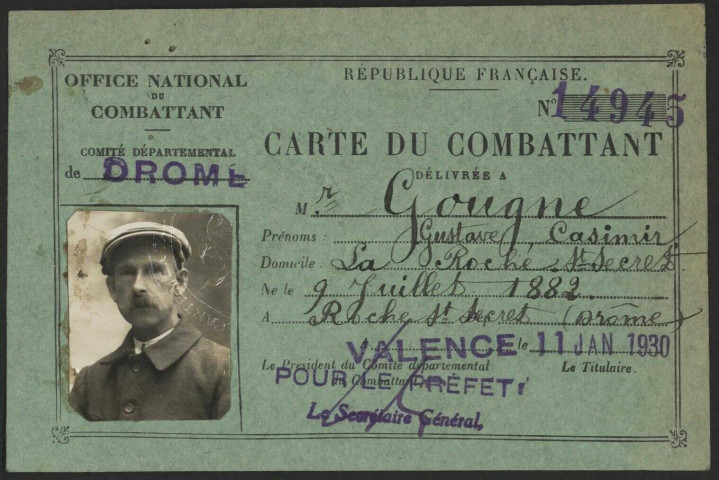 OFFICE NATIONAL
DU
COMBATTANT
COMITÉ DÉPARTEMENTAL
de DROME
RÉPUBLIQUE FRANÇAISE.
No 14945
CARTE DU COMBATTANT
DÉLIVRÉE A
Mr Gougne
Prénoms : Gustave Casimir
Domicile : La Roche St Secret
Né le 9 Juillet 1882
A Roche St Secret (Drôme)
VALENCE le 11 JAN 1930
Le Président du Comité départemental
du Combattant,
Le Titulaire.
POUR LE PRÉFET:
Le Secrétaire Général,